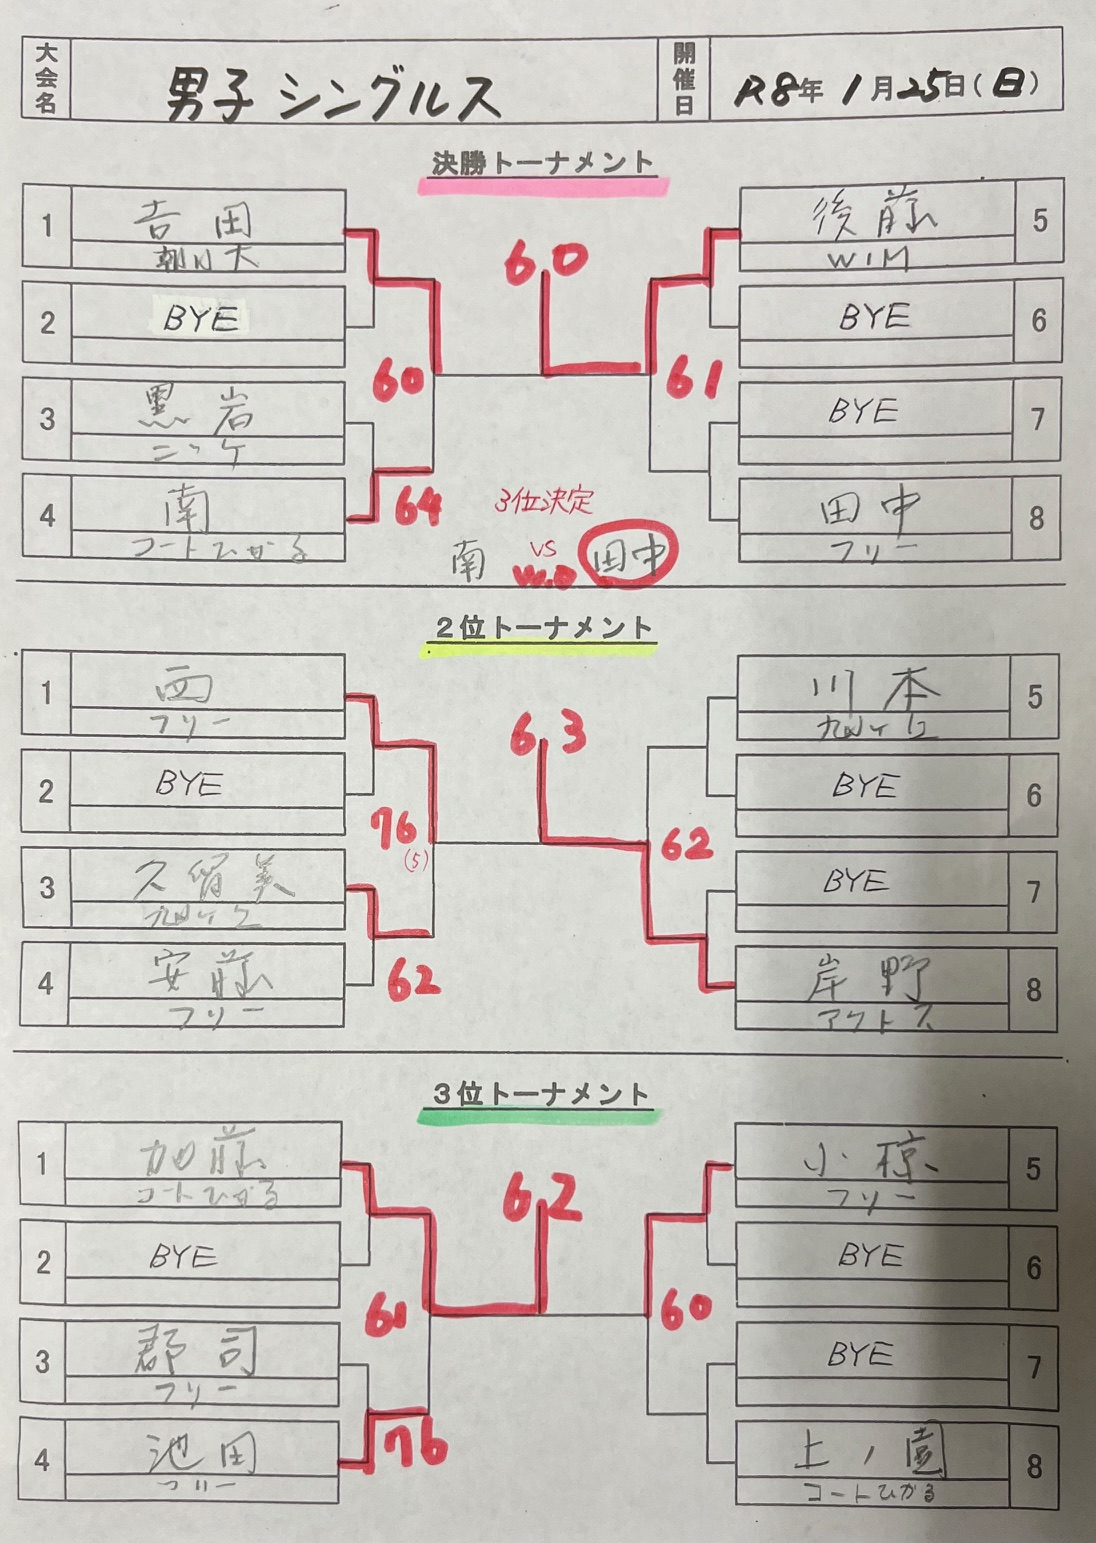 大会名 男子 シングルス 開催日 R8年 1月25日(日)
決勝トーナメント
1 吉田 朝日大
2 BYE
3 黒岩 ニッケ
4 南 コートひかる
5 後藤 WIM
6 BYE
7 BYE
8 田中 フリー
60
60
61
64
3位決定
南 vs 田中
W.O
2位トーナメント
1 西 フリー
2 BYE
3 久留美
4 安藤 フリー
5 川本
6 BYE
7 BYE
8 岸野 アクトス
63
76
(5)
62
62
3位トーナメント
1 加藤 コートひかる
2 BYE
3 郡司 フリー
4 池田 フリー
5 小椋 フリー
6 BYE
7 BYE
8 上ノ園 コートひかる
62
61
60
76